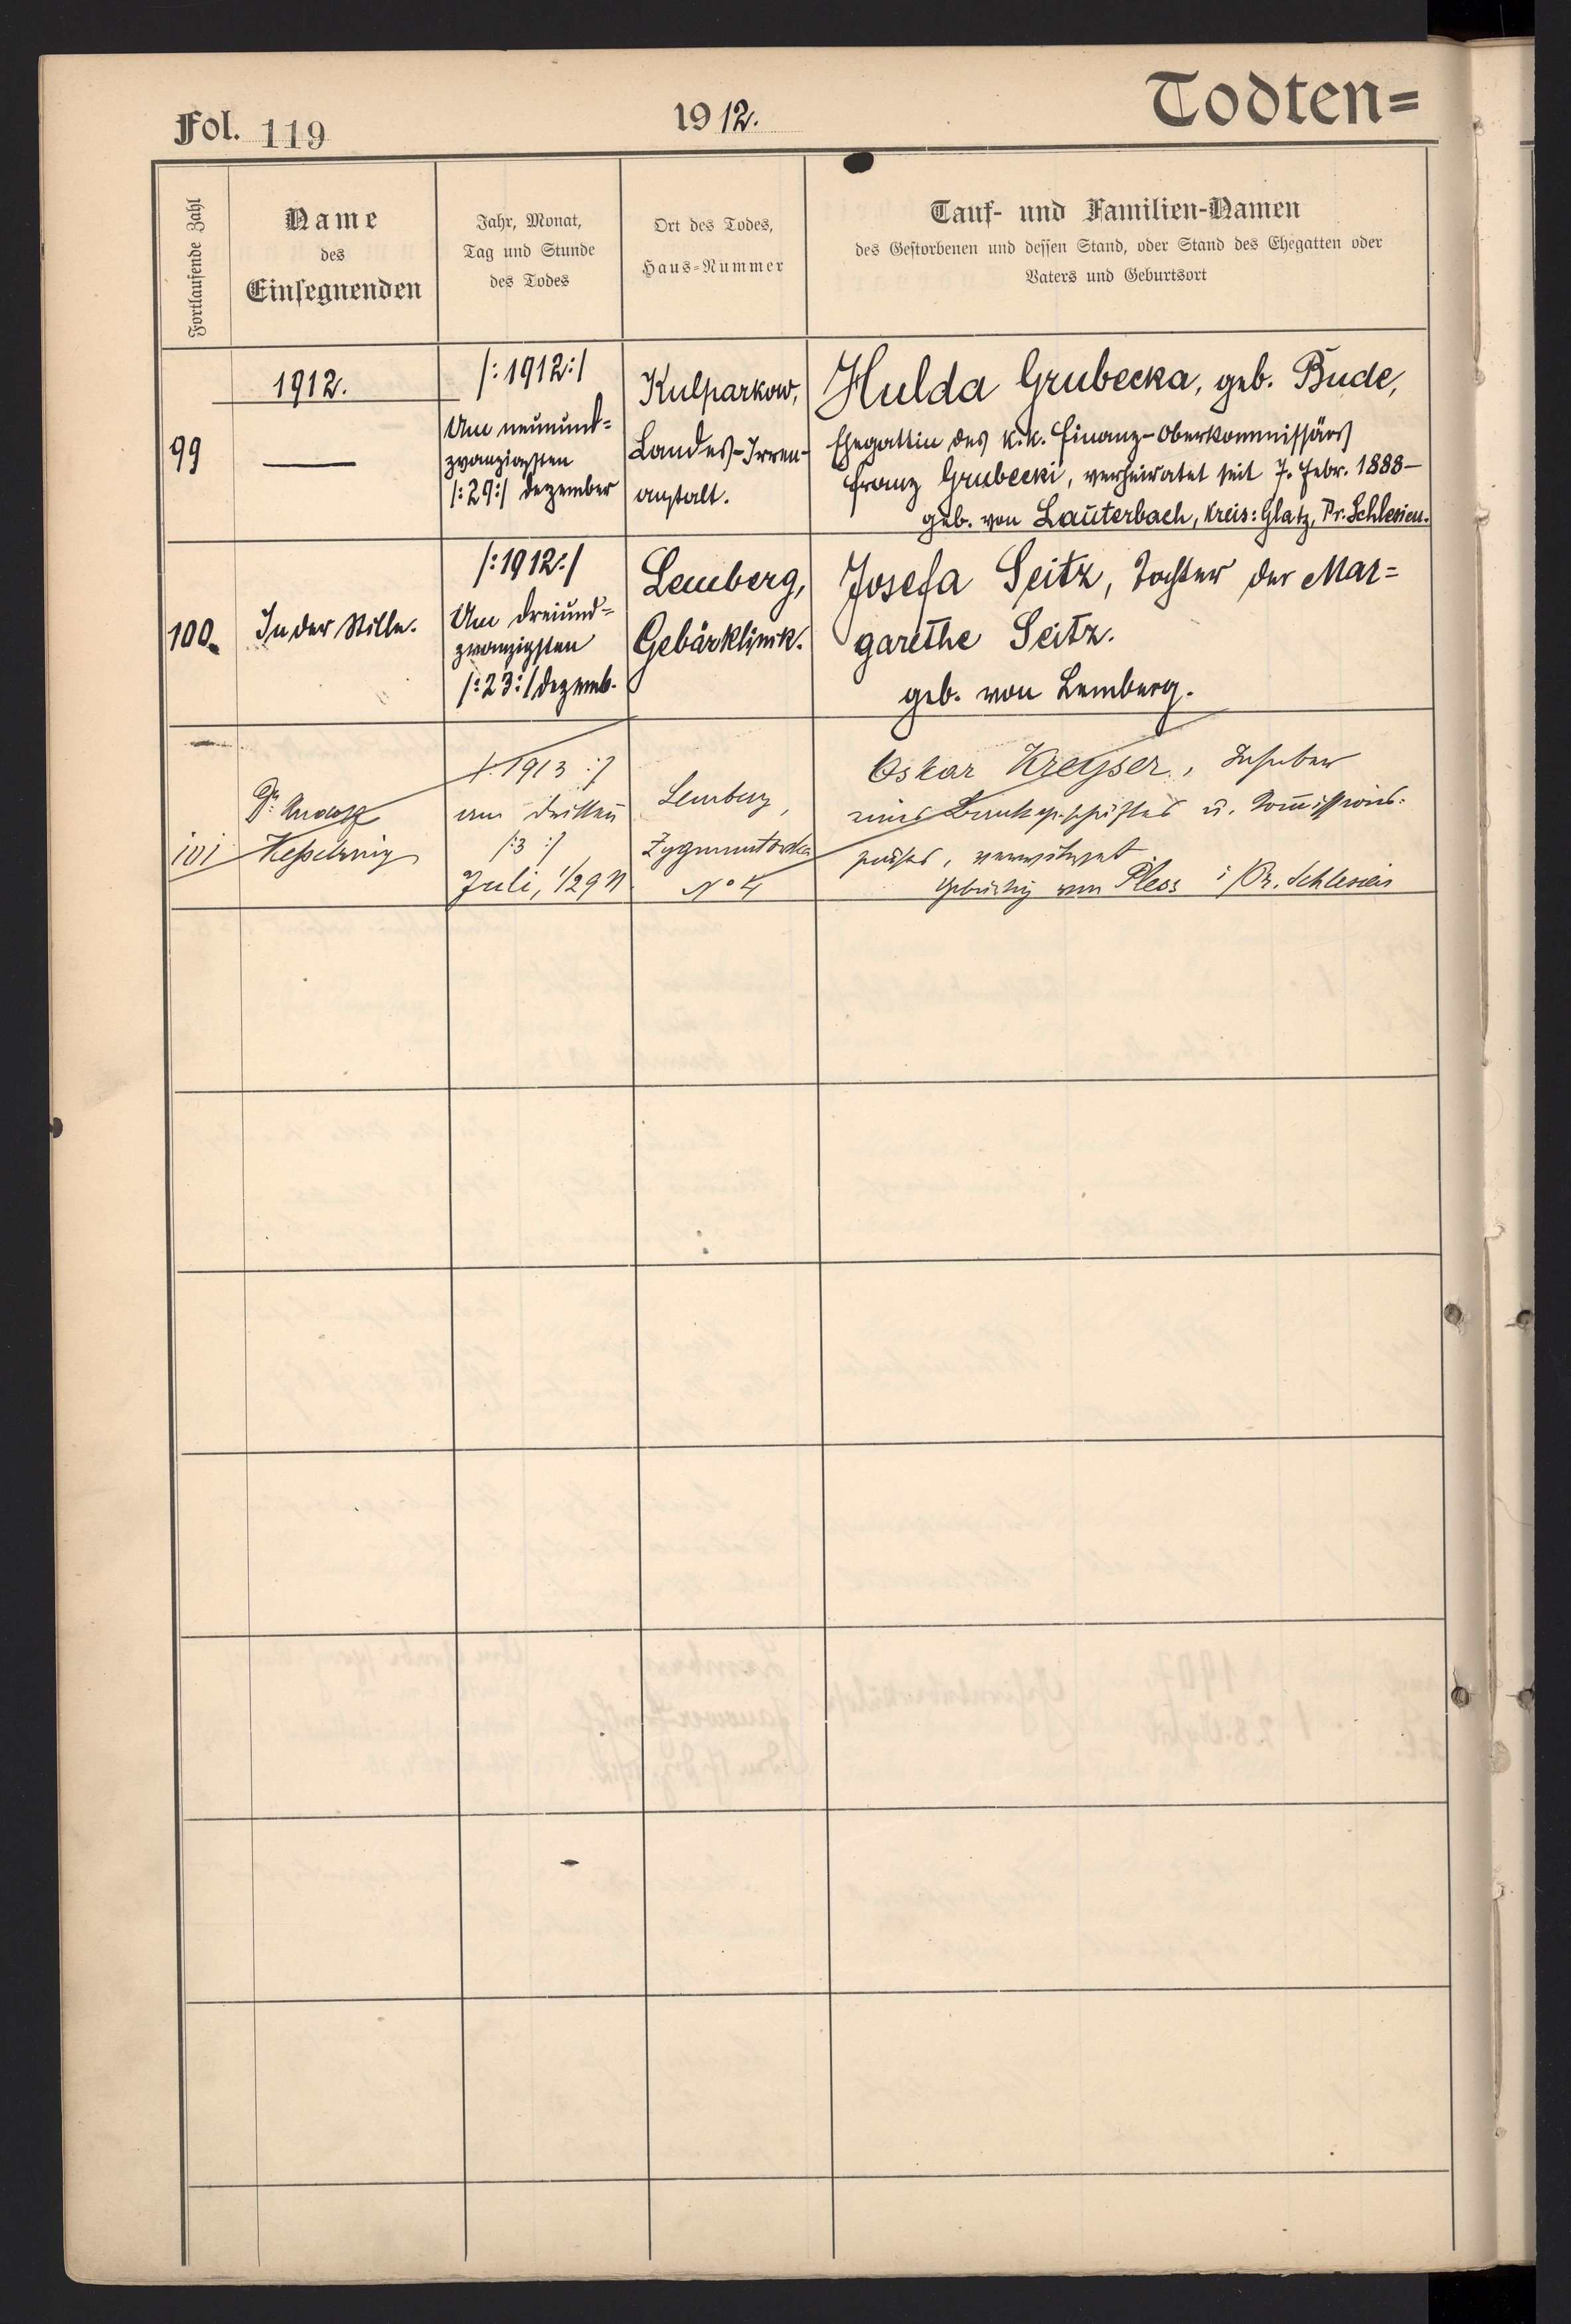 Fol. 119
1912.
Todten=
Fortlaufende Zahl
Name
des
Einsegnenden
Jahr, Monat,
Tag und Stunde
des Todes
Ort des Todes,
Haus-Nummer
Tauf- und Familien-Namen
des Gestorbenen und dessen Stand, oder Stand des Ehegatten oder
Vaters und Geburtsort
99
1912.
—
/:1912:/
Am neunund=
zwanzigsten
/:29:/ Dezember
Kulparkow,
Landes-Irren-
anstalt.
Hulda Grubecka, geb. Bude,
Ehegattin des k.k. Finanz-Oberkommissärs
Franz Grubecki, verheiratet seit 7. Febr. 1888-
geb. von Lauterbach, Kreis: Glatz, Pr. Schlesien.
100.
In der Stille.
/:1912:/
Am dreiund=
zwanzigsten
/:23:/ Dezemb.
Lemberg,
Gebärklinik.
Josefa Seitz, Tochter der Mar=
garethe Seitz.
geb. von Lemberg.
101
Dr. Rudolf
Kesselring
/: 1913 :/
am dritten
/:3 :/
Juli, 1/2 9
Lemberg,
Zygmuntowska
No 4
Oskar Kreyser, Inhaber
eines Bankgeschäftes u. Commissions-
verwitwet
gebürtig von Pless i/Pr. Schlesien